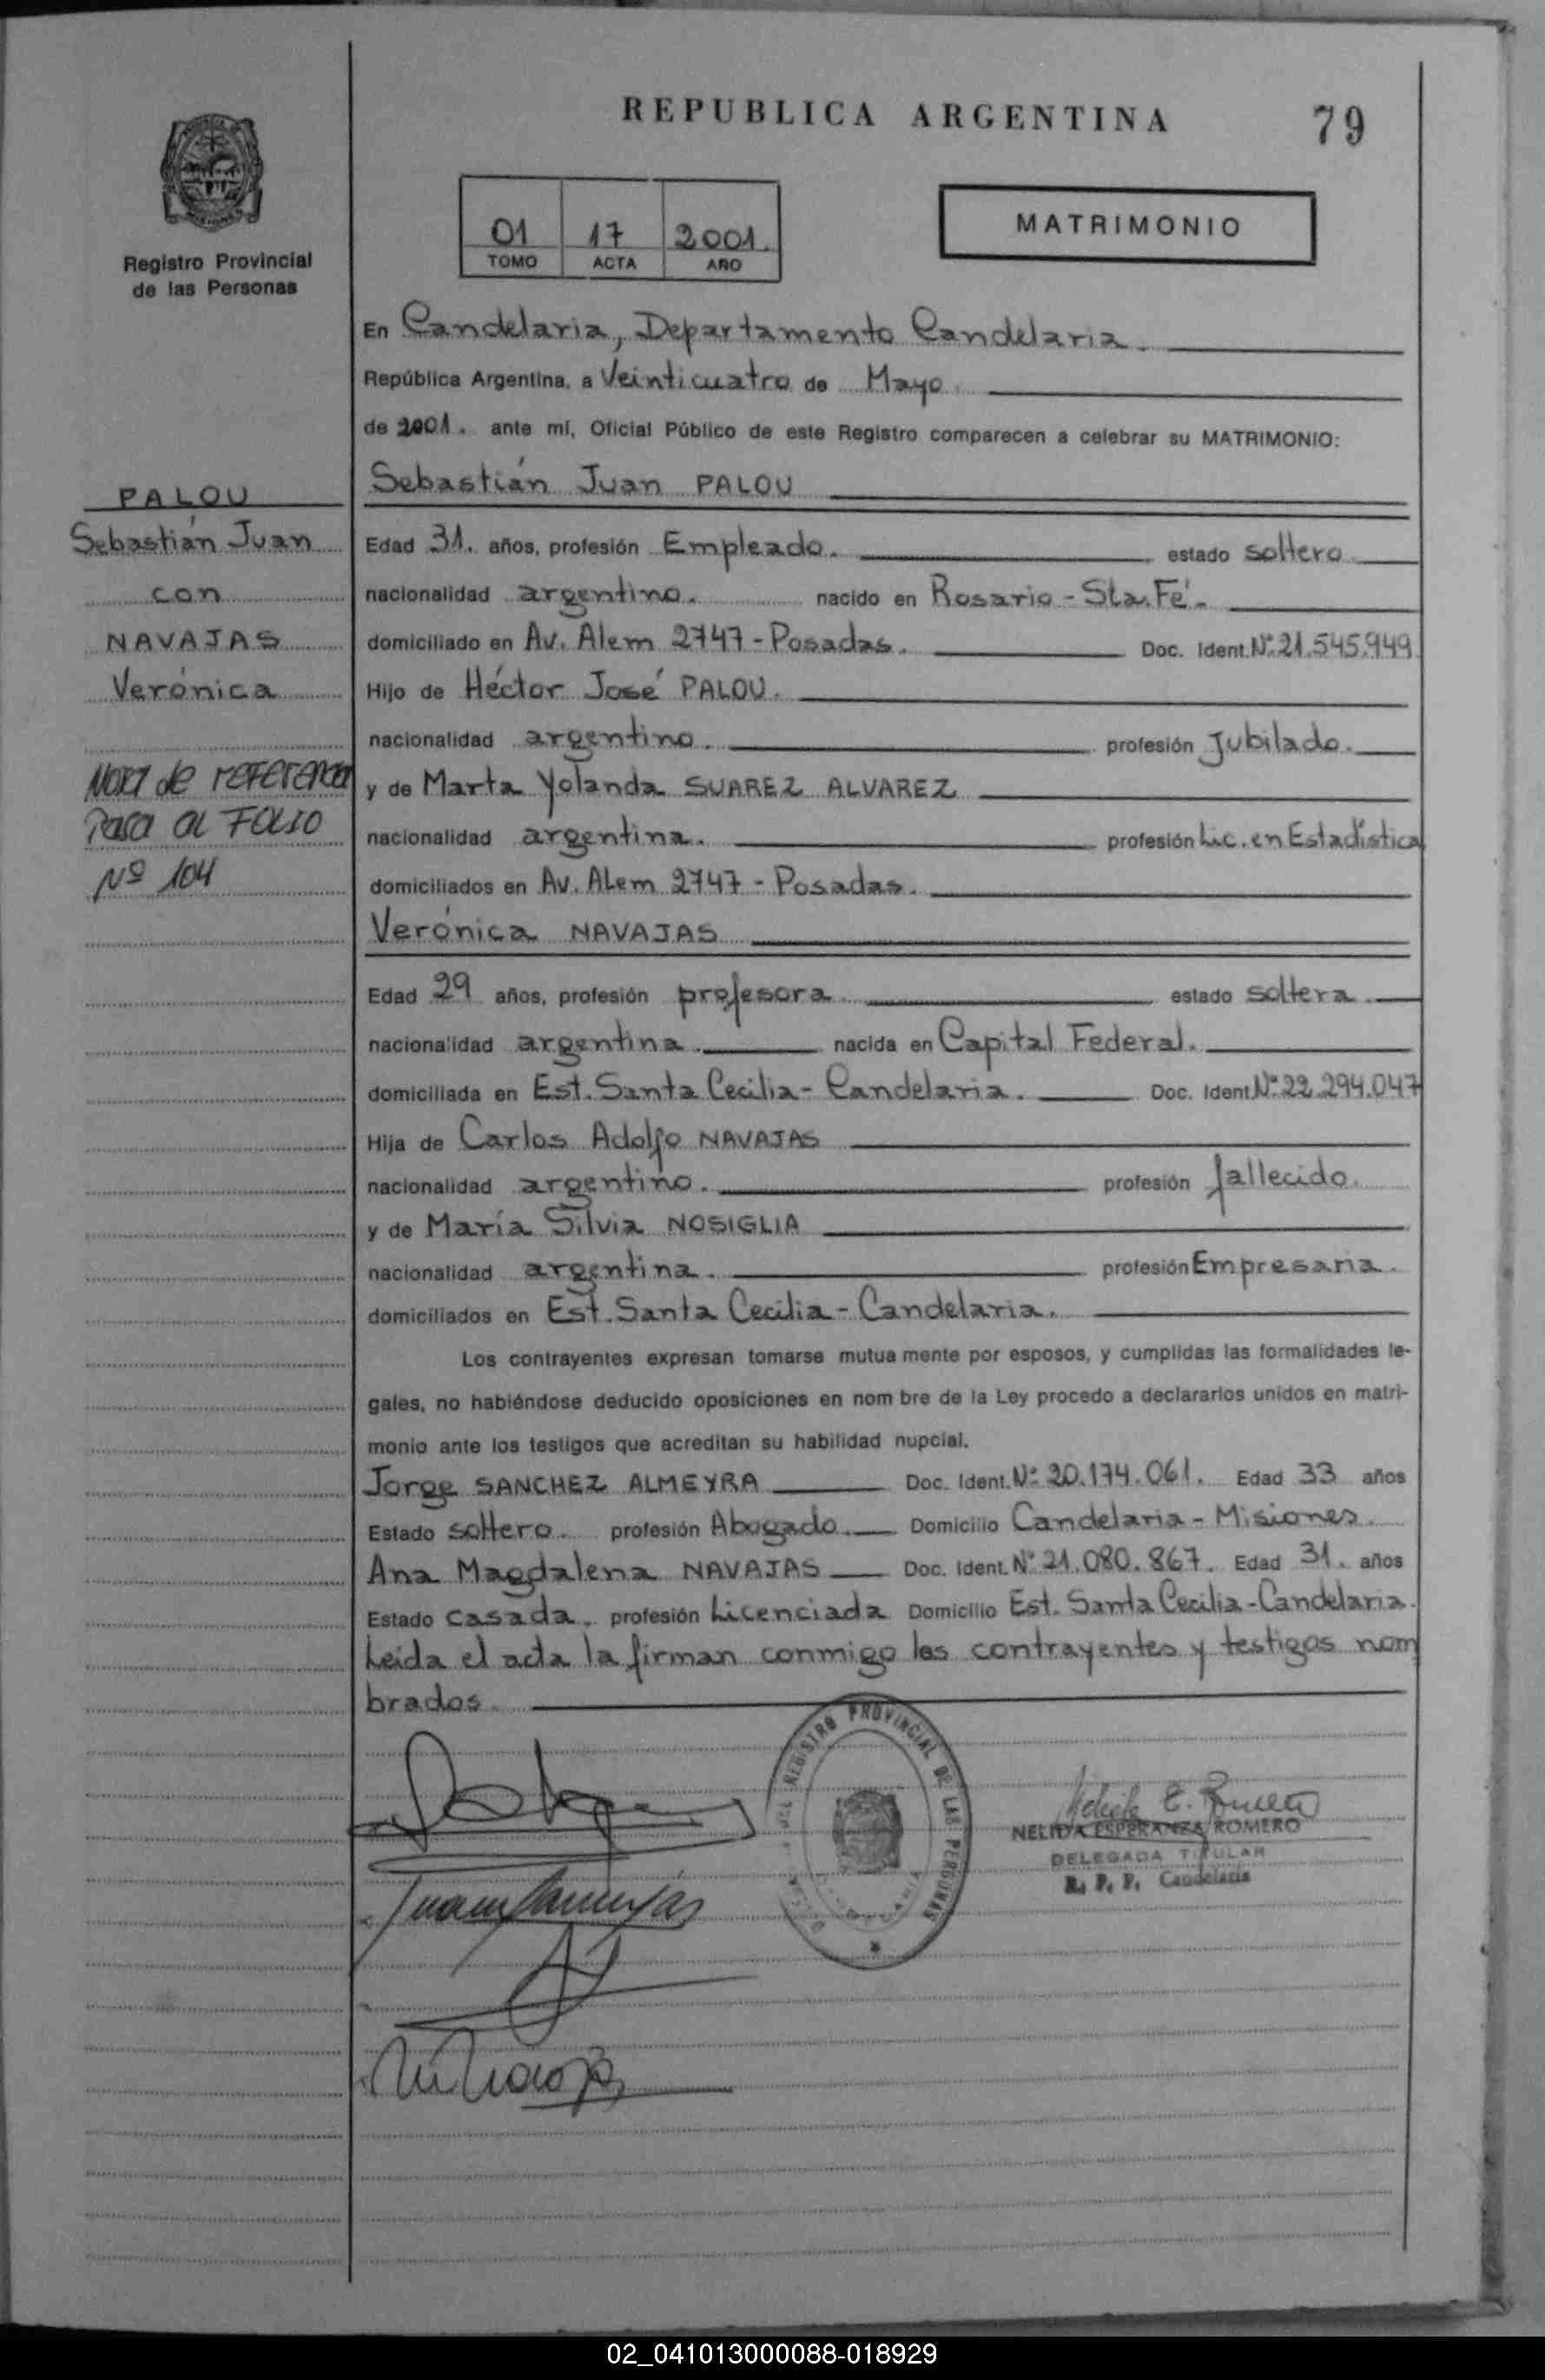 REPUBLICA ARGENTINA
79
01 17 2001.
TOMO ACTA AÑO
MATRIMONIO
Registro Provincial
de las Personas
En Candelaria, Departamento Candelaria.
República Argentina, a Veinticuatro de Mayo.
de 2001. ante mí, Oficial Público de este Registro comparecen a celebrar su MATRIMONIO:
PALOU
Sebastián Juan
con
NAVAJAS
Verónica
Nota de referencia
Pasa al FOLIO
Nº 104
Sebastián Juan PALOU
Edad 31. años, profesión Empleado. estado soltero
nacionalidad argentino. nacido en Rosario - Sta. Fé.
domiciliado en Av. Alem 2747 - Posadas. Doc. Ident. Nº: 21.545.949
Hijo de Héctor José PALOU.
nacionalidad argentino. profesión Jubilado.
y de Marta Yolanda SUAREZ ALVAREZ
nacionalidad argentina. profesión Lic. en Estadística
domiciliados en Av. Alem 2747 - Posadas.
Verónica NAVAJAS
Edad 29 años, profesión profesora. estado soltera.
nacionalidad argentina. nacida en Capital Federal.
domiciliada en Est. Santa Cecilia - Candelaria. Doc. Ident. Nº: 22.294.047
Hija de Carlos Adolfo NAVAJAS
nacionalidad argentino. profesión fallecido.
y de María Silvia NOSIGLIA
nacionalidad argentina. profesión Empresaria.
domiciliados en Est. Santa Cecilia - Candelaria.
Los contrayentes expresan tomarse mutua mente por esposos, y cumplidas las formalidades le-
gales, no habiéndose deducido oposiciones en nom bre de la Ley procedo a declararlos unidos en matri-
monio ante los testigos que acreditan su habilidad nupcial.
Jorge SANCHEZ ALMEYRA Doc. Ident. Nº: 20.174.061. Edad 33 años
Estado soltero. profesión Abogado. Domicilio Candelaria - Misiones.
Ana Magdalena NAVAJAS Doc. Ident. Nº 21.080.867. Edad 31. años
Estado casada. profesión Licenciada Domicilio Est. Santa Cecilia - Candelaria.
Leída el acta la firman conmigo los contrayentes y testigos nom
brados.
REGISTRO PROVINCIAL DE LAS PERSONAS
NELIDA ESPERANZA ROMERO
DELEGADA TITULAR
R. P. P. Candelaria
02_041013000088-018929